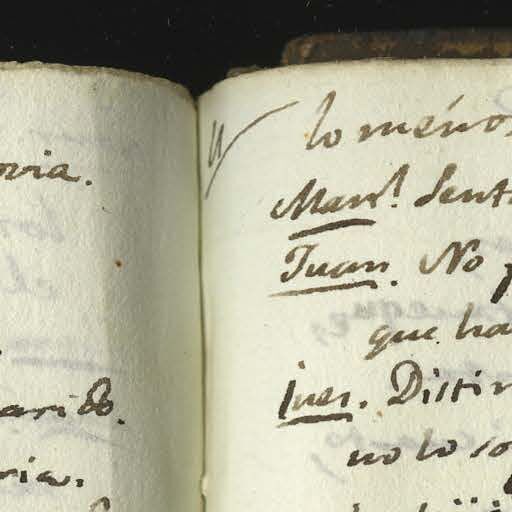 ovia.
arido.
ria.
lo menos
Man.l Sent
Juan. No p
que ha
Ines. Distin
no lo so